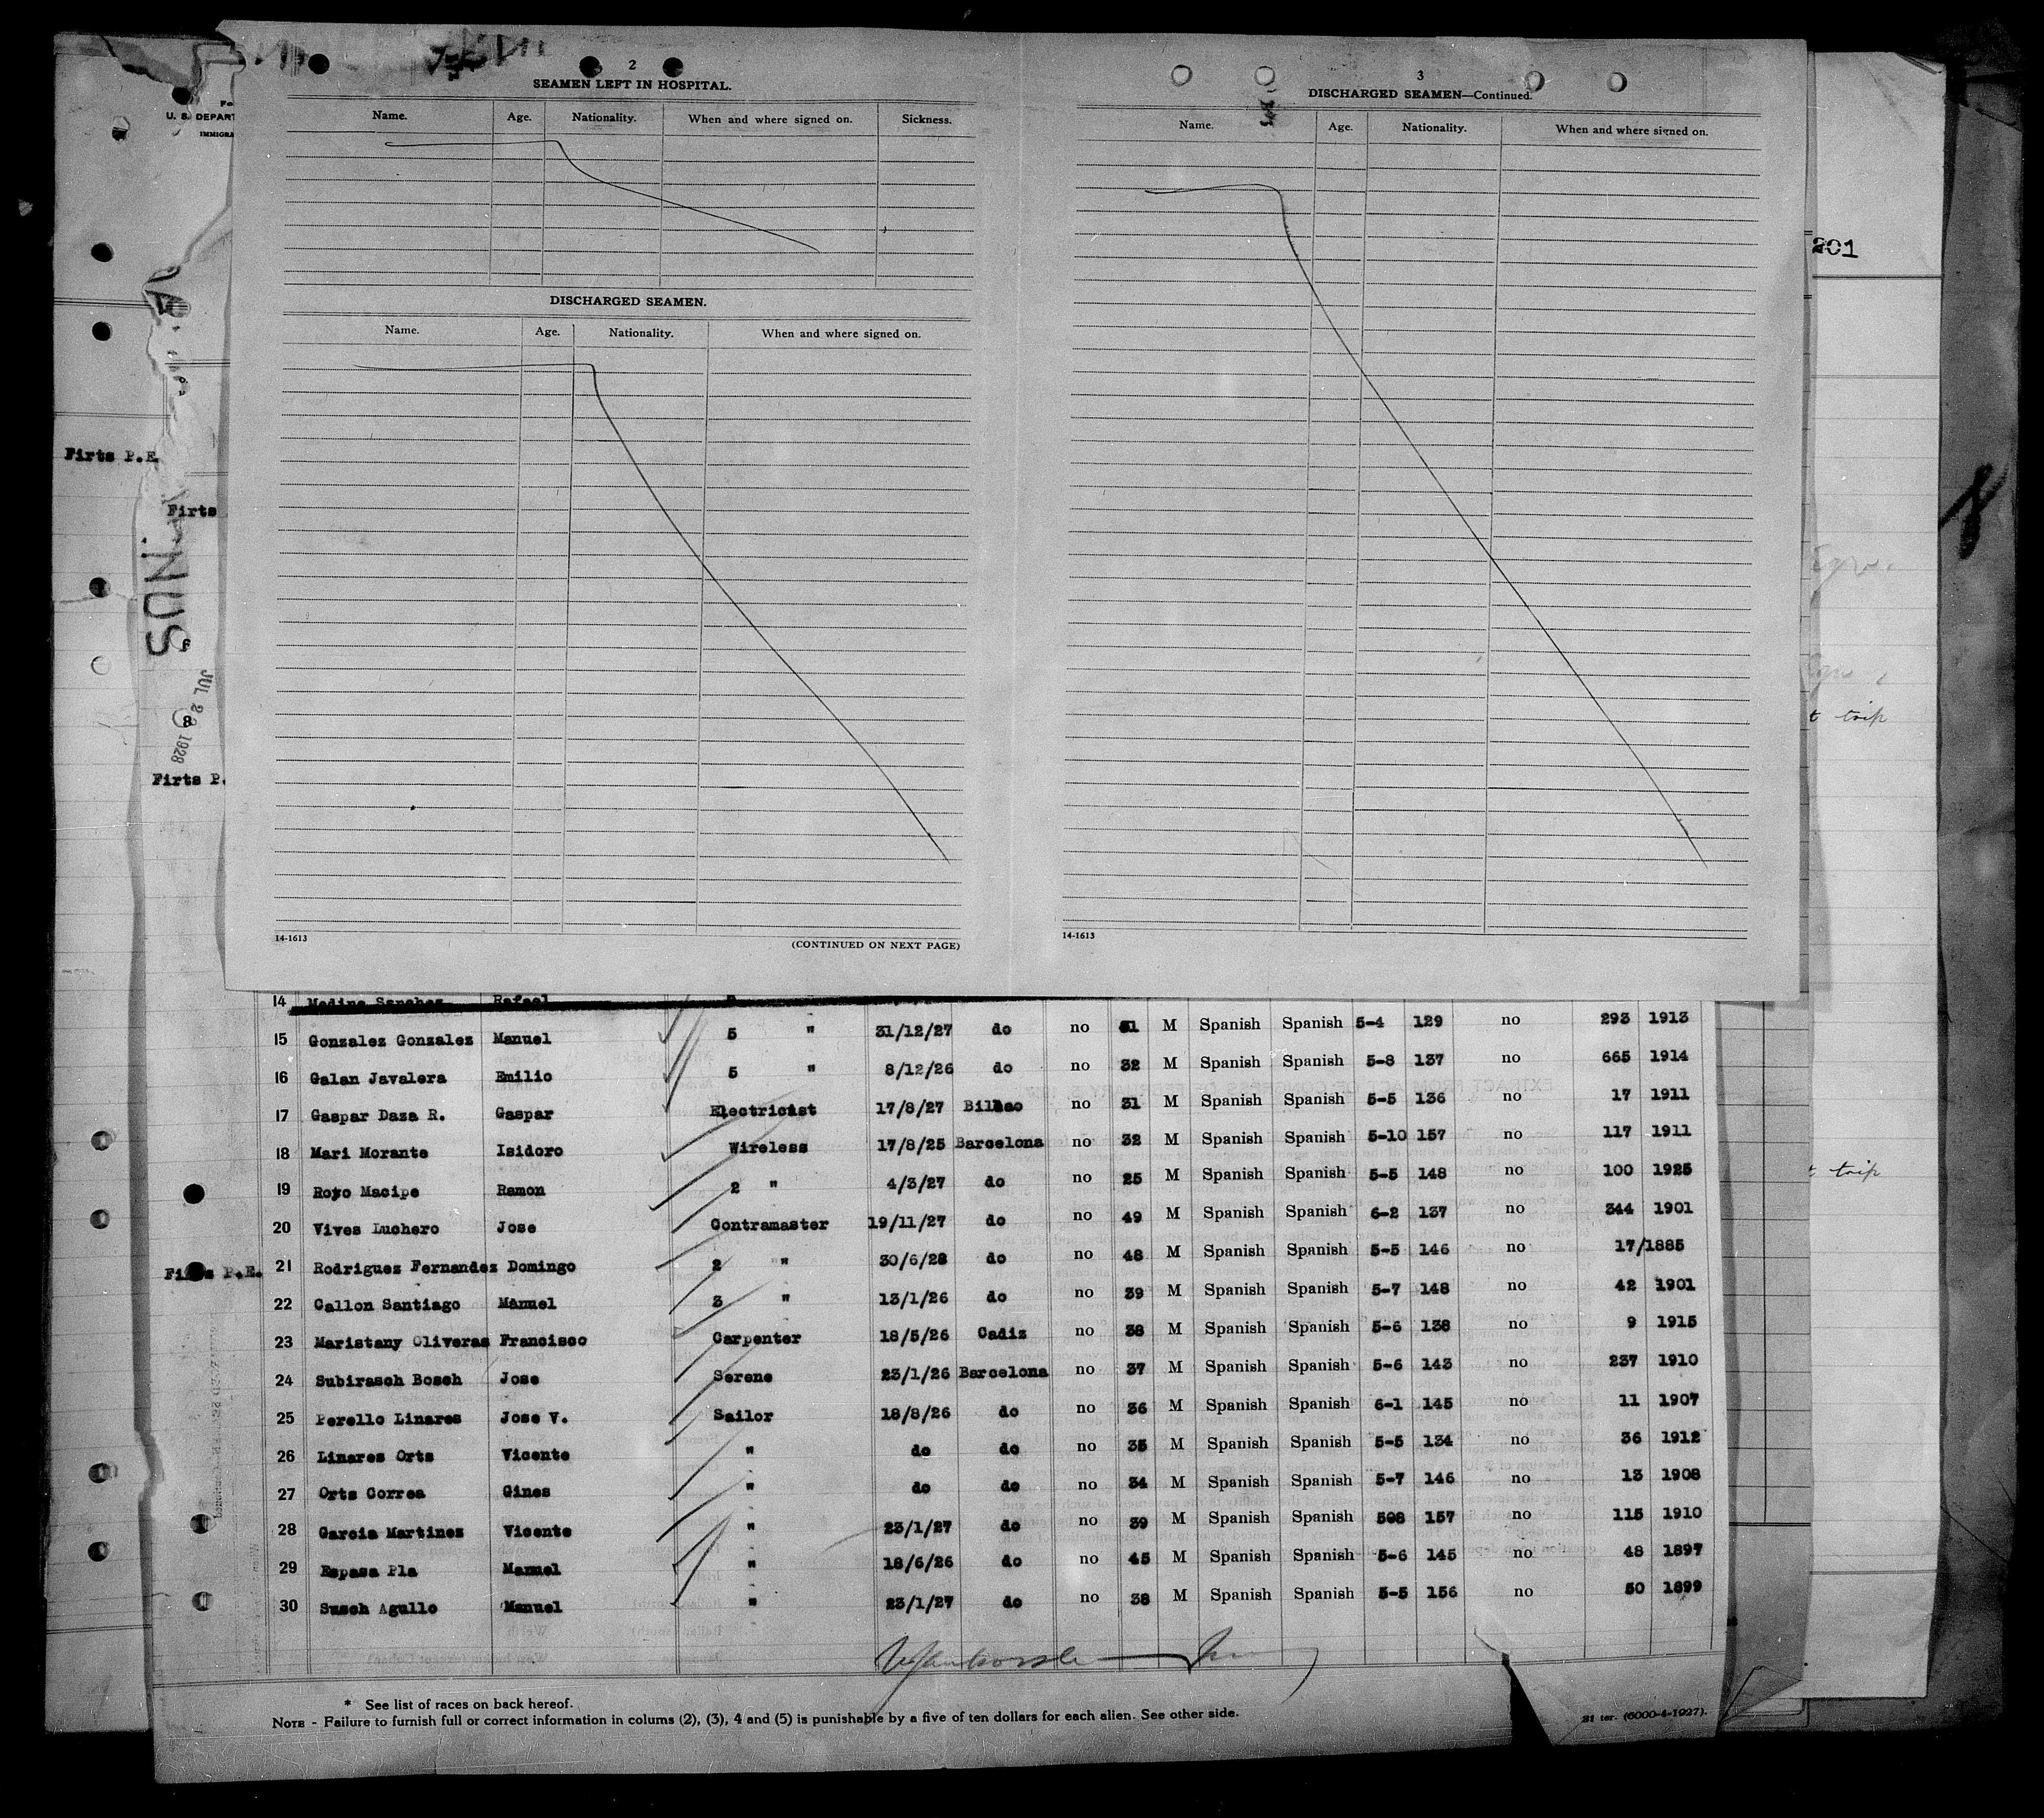 2
SEAMEN LEFT IN HOSPITAL.
Name. Age. Nationality. When and where signed on. Sickness.
DISCHARGED SEAMEN.
Name. Age. Nationality. When and where signed on.
14-1613 (CONTINUED ON NEXT PAGE)
3
DISCHARGED SEAMEN—Continued.
Name. Age. Nationality. When and where signed on.
14-1613
U. S. DEPART
IMMIGRA
201
Firts P.E.
Firts
JUL 28 1928
Firts P.
t trip
t trip
Firts P.E.
14 Medina Sanchez Rafael
15 Gonzalez Gonzalez Manuel 5 " 31/12/27 do no 31 M Spanish Spanish 5-4 129 no 293 1913
16 Galan Javalera Emilio 5 " 8/12/26 do no 32 M Spanish Spanish 5-8 137 no 665 1914
17 Gaspar Daza R. Gaspar Electricist 17/8/27 Bilbao no 31 M Spanish Spanish 5-5 136 no 17 1911
18 Mari Morante Isidoro Wireless 17/8/25 Barcelona no 32 M Spanish Spanish 5-10 157 no 117 1911
19 Royo Macipe Ramon 2 " 4/3/27 do no 25 M Spanish Spanish 5-5 148 no 100 1925
20 Vives Luchero Jose Contramaster 19/11/27 do no 49 M Spanish Spanish 6-2 137 no 344 1901
21 Rodriguez Fernandez Domingo 2 " 30/6/28 do no 48 M Spanish Spanish 5-5 146 no 17/1885
22 Callon Santiago Manuel 3 " 13/1/26 do no 39 M Spanish Spanish 5-7 148 no 42 1901
23 Maristany Oliveras Francisco Carpenter 18/5/26 Cadiz no 38 M Spanish Spanish 5-6 138 no 9 1915
24 Subirasch Bosch Jose Serene 23/1/26 Barcelona no 37 M Spanish Spanish 5-6 143 no 237 1910
25 Perello Linares Jose V. Sailor 18/8/26 do no 36 M Spanish Spanish 6-1 145 no 11 1907
26 Linares Orts Vicente " do do no 35 M Spanish Spanish 5-5 134 no 36 1912
27 Orts Correa Gines " do do no 34 M Spanish Spanish 5-7 146 no 13 1908
28 Garcia Martinez Vicente " 23/1/27 do no 39 M Spanish Spanish 508 157 no 115 1910
29 Espasa Pla Manuel " 18/6/26 do no 45 M Spanish Spanish 5-6 145 no 48 1897
30 Susch Agullo Manuel " 23/1/27 do no 38 M Spanish Spanish 5-5 156 no 50 1899
* See list of races on back hereof.
NOTE - Failure to furnish full or correct information in colums (2), (3), 4 and (5) is punishable by a five of ten dollars for each alien. See other side.
31 ter. (6000-4-1927).